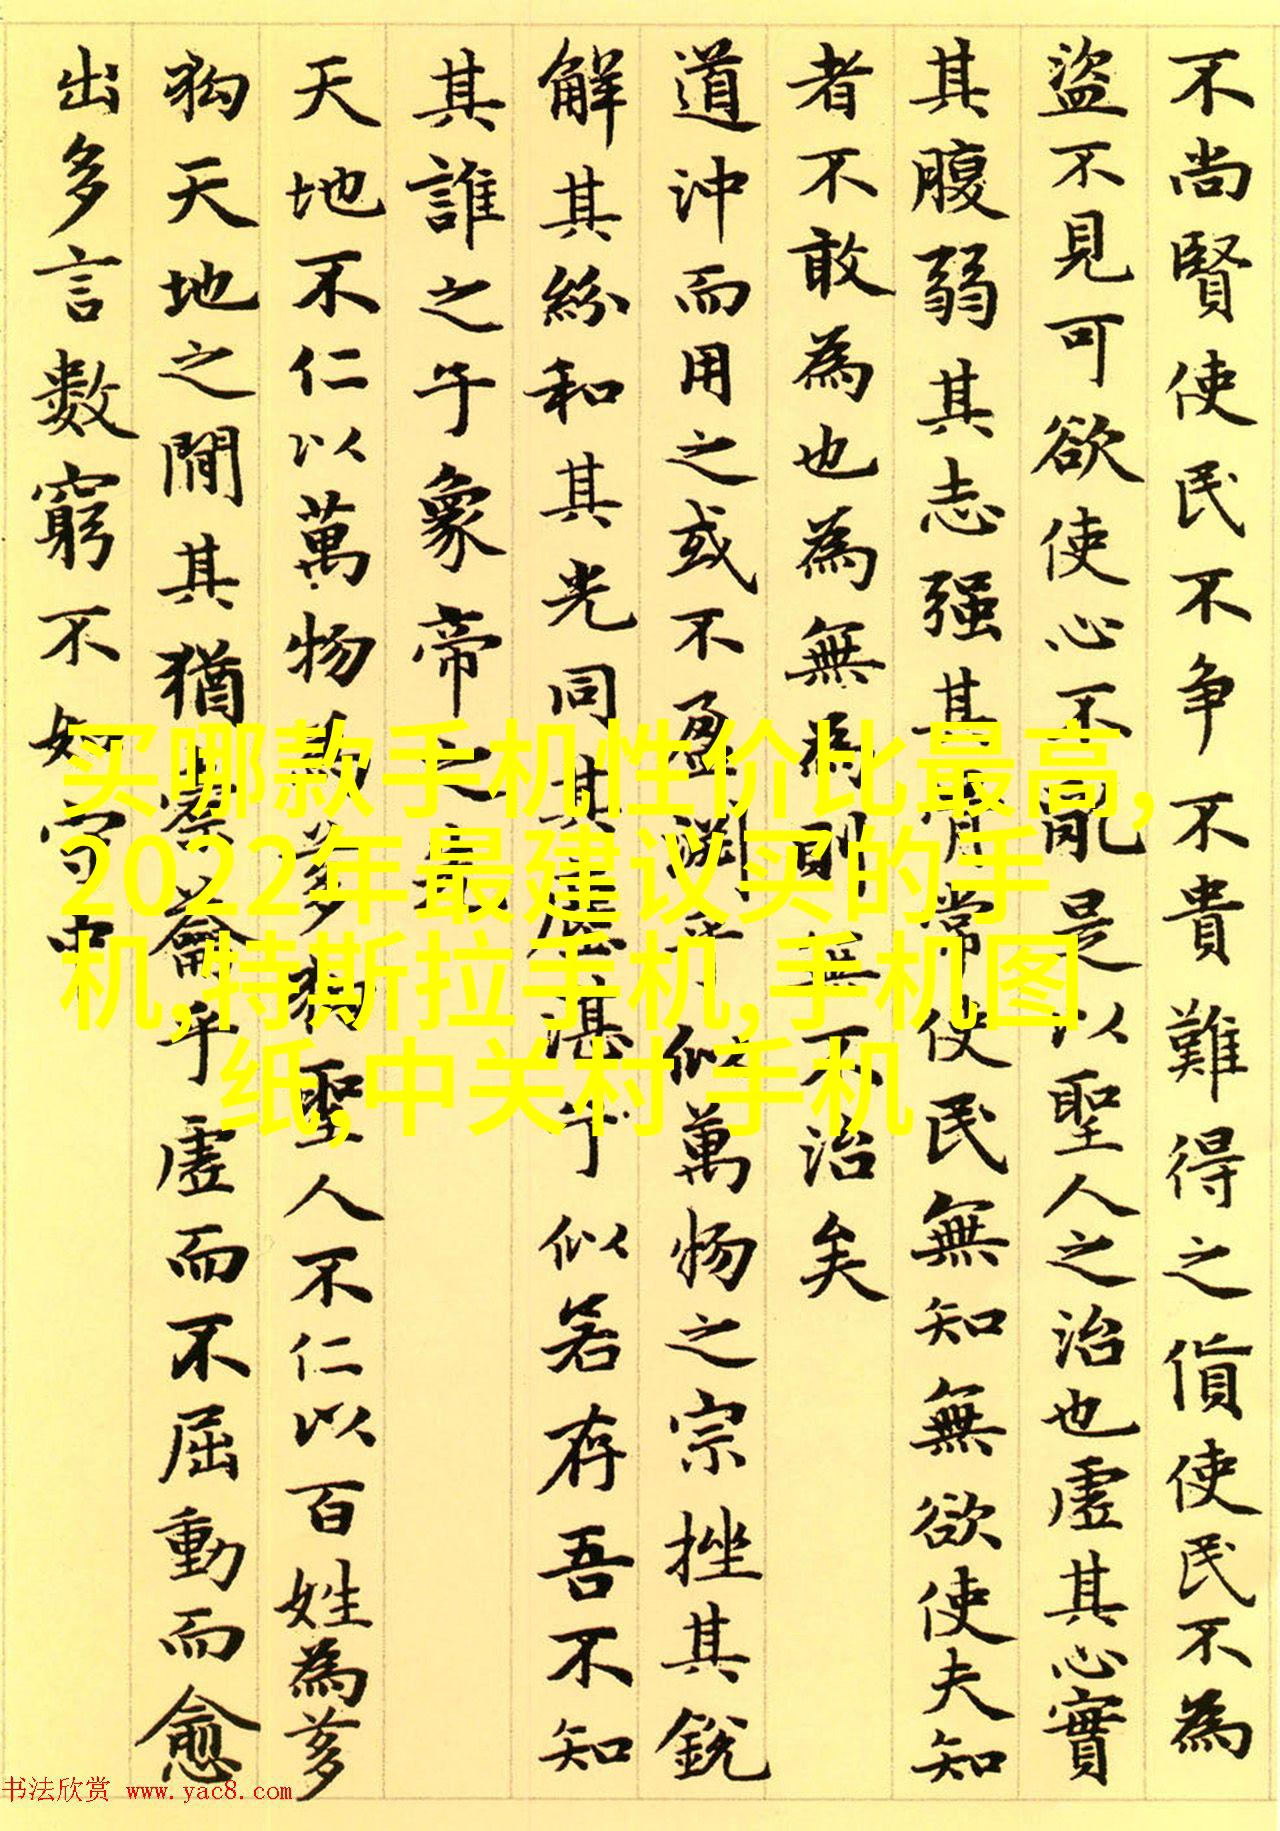 不尚賢使民不争不貴難得之貨使民不為
盜不見可欲使心不亂是以聖人之治也虛其心實
其腹弱其志强其骨常使民無知無欲使夫知
者不敢為也為無為則無不治矣
道沖而用之或不盈淵乎似萬物之宗挫其銳
解其紛和其光同其塵湛乎似若存吾不知
其誰之子象帝之先
天地不仁以萬物為芻狗聖人不仁以百姓為芻
狗天地之間其猶橐籥乎虛而不屈動而愈
出多言數窮不如守中
买哪款手机性价比最高,
2022年最建议买的手
机,特斯拉手机,手机图
纸,中关村 手机
书法欣赏 www.yac8.com